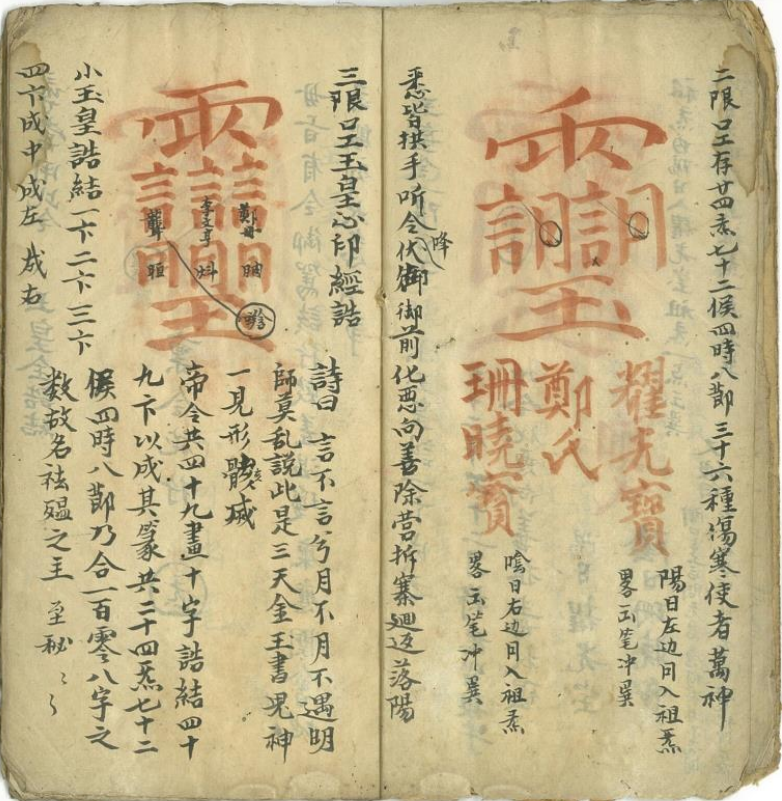 二限呈存廿四炁七十二候四時八節三十六種傷寒使者萬神
耀光寶
陽日左边月入祖炁
畧玉筆冲巽
鄭氏
珊曉寳
陰日右边月入祖炁
畧玉筆冲巽
悉皆拱手听令伏降御前化悪向善除营拆寨廻返落陽
三限呈玉皇心印經誥
詩曰言不言兮月不月不遇明
師莫乱説此是三天金玉書鬼神
一見形骸滅
帝令共四十九畫十字誥結四十
九卞以成其篆共二十四炁七十二
候四時八節乃合一百零八字之
数故名祛瘟之主 至秘〻〻
小玉皇誥結一卞二卞三卞
四卞成中成左成右